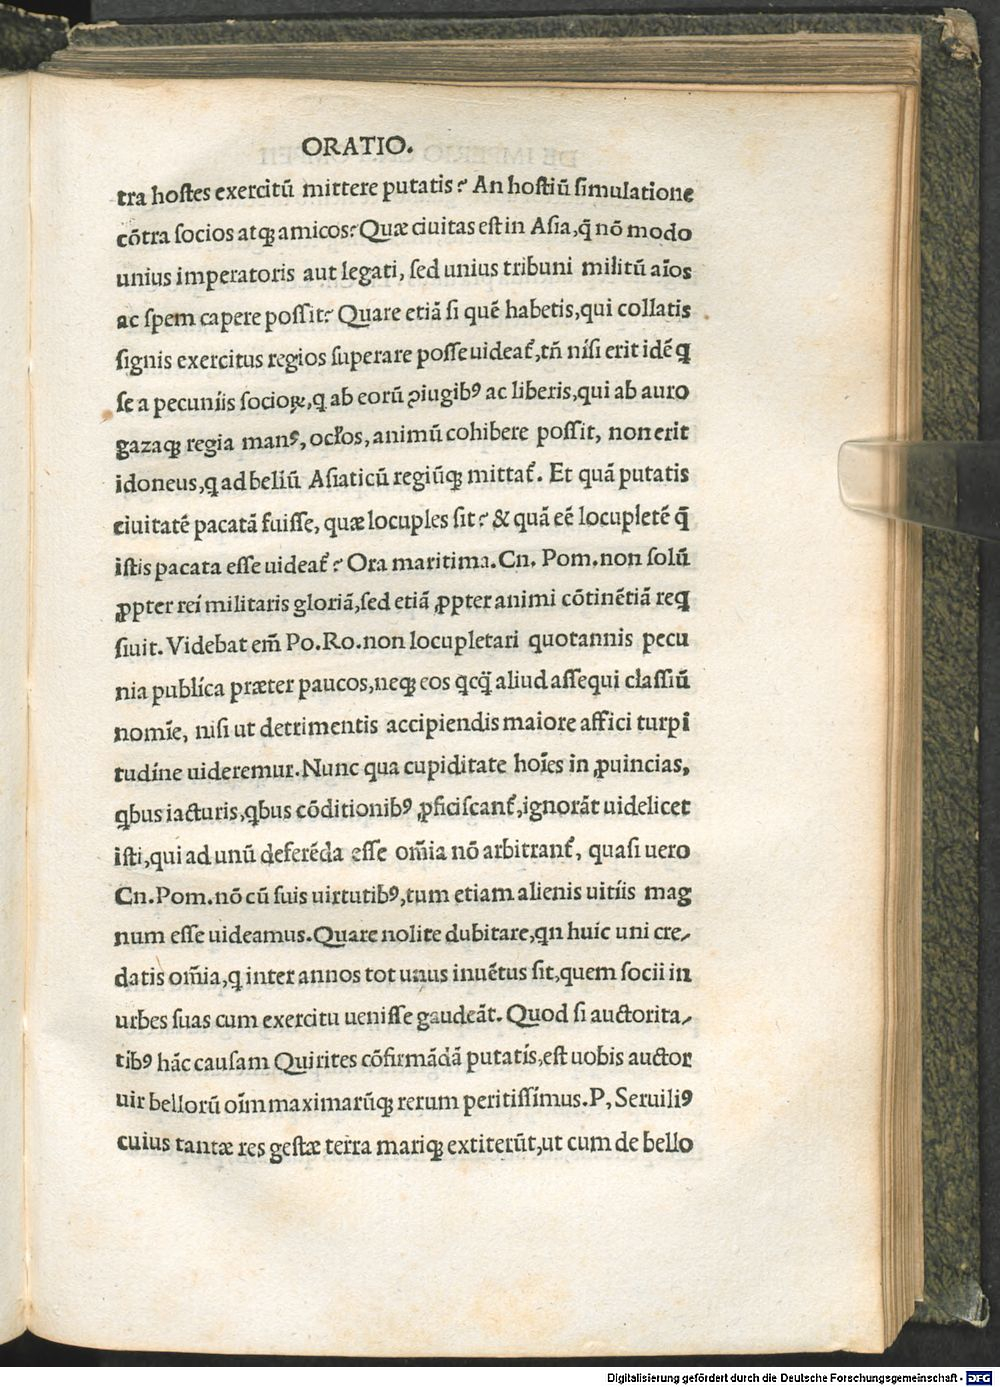 ORATIO.
tra hostes exercitū mittere putatis? An hostiū simulatione
cōtra socios atqꝫ amicos? Quæ ciuitas est in Asia, q̄ nō modo
unius imperatoris aut legati, sed unius tribuni militū aı̄os
ac spem capere possit? Quare etiā si quē habetis, qui collatis
signis exercitus regios superare posse uideat᷑, tn̄ nisi erit idē q
se a pecuniis socioꝝ, q ab eorū ꝯiugibꝰ ac liberis, qui ab auro
gazaqꝫ regia manꝰ, ocƚos, animū cohibere possit, non erit
idoneus, q ad bellū Asiaticū regiūqꝫ mittat᷑. Et quā putatis
ciuitatē pacatā fuisse, quæ locuples sit? & quā eē locupletē q̄
istis pacata esse uideat᷑? Ora maritima. Cn. Pom. non solū
ꝓpter rei militaris gloriā, sed etiā ꝓpter animi cōtinētiā req
siuit. Videbat em̄ Po. Ro. non locupletari quotannis pecu
nia publica præter paucos, neqꝫ eos qcq̄ aliud assequi classiū
nomı̄e, nisi ut detrimentis accipiendis maiore affici turpi
tudine uideremur. Nunc qua cupiditate hoı̄es in ꝓuincias,
qbus iacturis, qbus cōditionibꝰ ꝓficiscant᷑, ignorāt uidelicet
isti, qui ad unū deferēda esse om̄ia nō arbitrant᷑, quasi uero
Cn. Pom. nō cū suis uirtutibꝰ, tum etiam alienis uitiis mag
num esse uideamus. Quare nolite dubitare, qn huic uni cre-
datis om̄ia, q inter annos tot unus inuētus sit, quem socii in
urbes suas cum exercitu uenisse gaudeāt. Quod si auctorita-
tibꝰ hāc causam Quirites cōfirmādā putatis, est uobis auctor
uir bellorū oı̄m maximarūqꝫ rerum peritissimus. P, Seruiliꝰ
cuius tantæ res gestæ terra mariqꝫ extiterūt, ut cum de bello
Digitalisierung gefördert durch die Deutsche Forschungsgemeinschaft - DFG